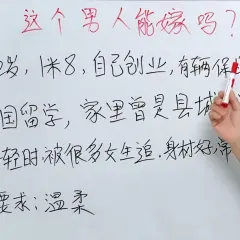 这个男人能嫁吗?
岁,1米8,自己创业,有辆保
国留学,家里曾是县城
轻时,被很多女生追,身材好,常
要求:温柔